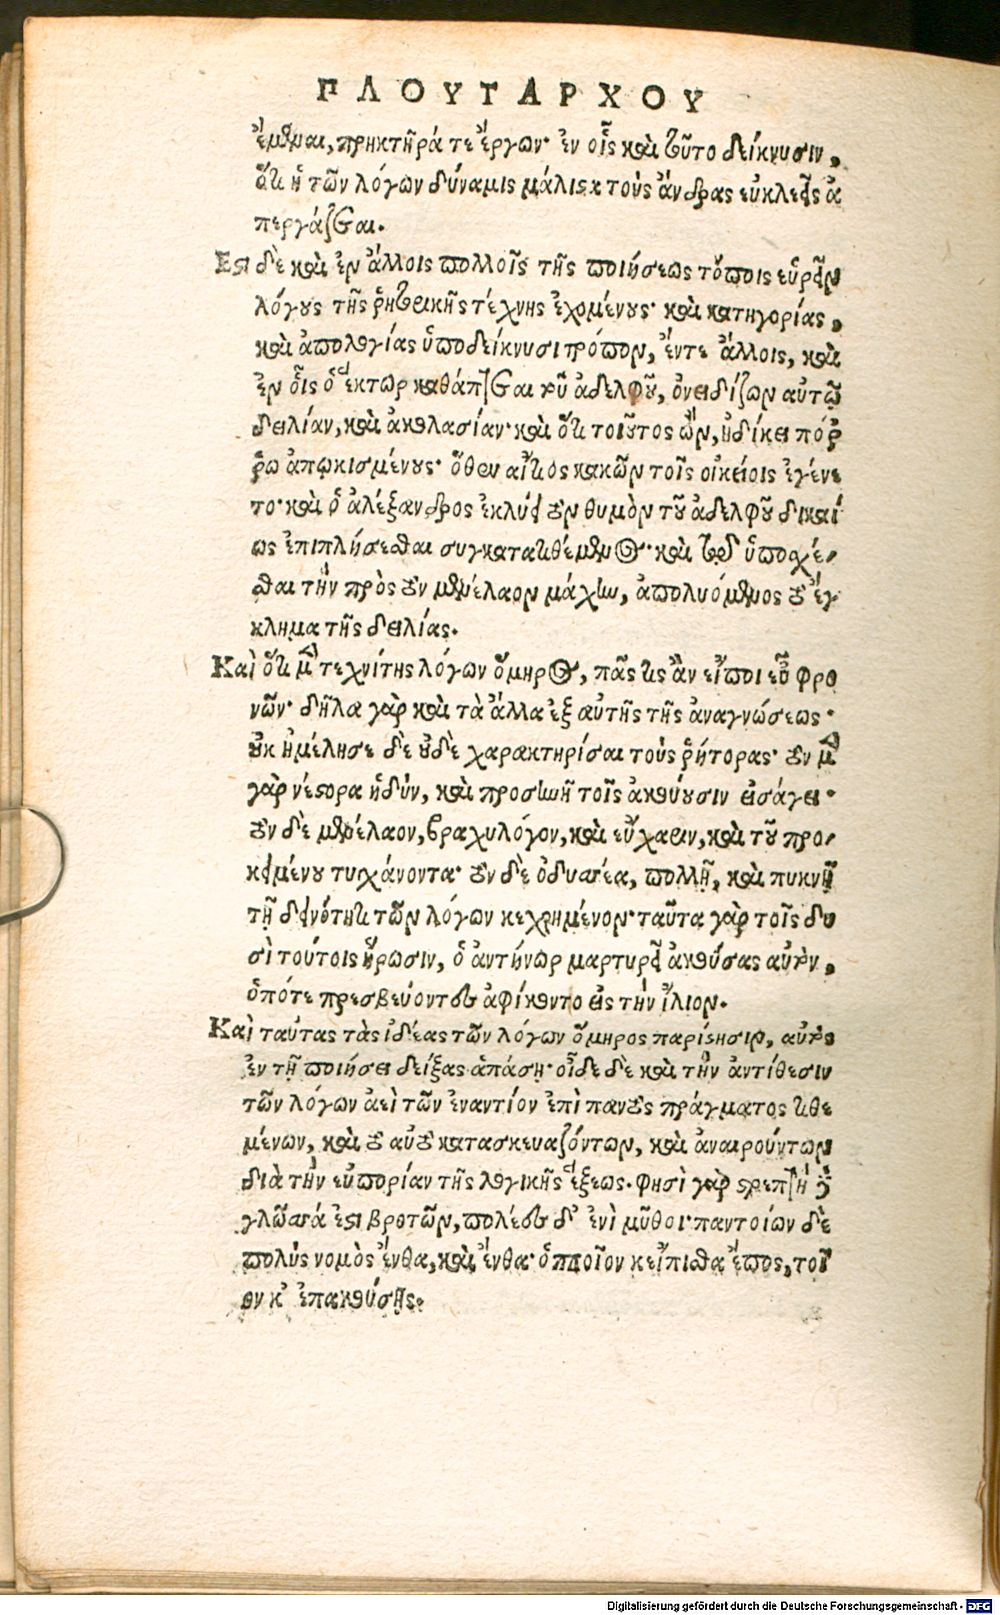 ΠΛΟΥΤΑΡΧΟΥ
ἔμεναι, πρηκτῆρά τε ἔργων· ἐν οἷς καὶ τοῦτο δείκνυσιν,
ὅτι ἡ τῶν λόγων δύναμις μάλιστα τοὺς ἄνδρας εὐκλεεῖς ἀ
περγάζεται.
Εστι δὲ καὶ ἐν ἄλλοις πολλοῖς τῆς ποιήσεως τόποις εὑρεῖν
λόγους τῆς ῥητορικῆς τέχνης ἐχομένους· καὶ κατηγορίας,
καὶ ἀπολογίας ὑποδείκνυσι τρόπον, ἔντε ἄλλοις, καὶ
ἐν οἷς ὁ ἕκτωρ καθάπτεται τοῦ ἀδελφοῦ, ὀνειδίζων αὐτῷ
δειλίαν, καὶ ἀκολασίαν· καὶ ὅτι τοιοῦτος ὢν, ἠδίκει πόρ
ῥω ἀπῳκισμένους· ὅθεν αἴτιος κακῶν τοῖς οἰκείοις ἐγένε
το· καὶ ὁ ἀλέξανδρος ἐκλύει τὸν θυμὸν τοῦ ἀδελφοῦ δικαί
ως ἐπιπλήσεσθαι συγκατατιθέμενος· καὶ τῷ ὑποσχέ-
σθαι τὴν πρὸς τὸν μενέλαον μάχην, ἀπολυόμενος τὸ ἔγ
κλημα τῆς δειλίας.
Καὶ ὅτι μὲν τεχνίτης λόγων ὅμηρος, πᾶς τις ἂν εἴποι εὖ φρο
νῶν· δῆλα γὰρ καὶ τὰ ἄλλα ἐξ αὐτῆς τῆς ἀναγνώσεως·
οὐκ ἠμέλησε δὲ οὐδὲ χαρακτηρίσαι τοὺς ῥήτορας· τὸν μὲν
γὰρ νέστορα ἡδὺν, καὶ προσηνῆ τοῖς ἀκούουσιν εἰσάγει·
τὸν δὲ μενέλαον, βραχυλόγον, καὶ εὔχαριν, καὶ τοῦ προ-
κειμένου τυγχάνοντα· τὸν δὲ ὀδυσσέα, πολλῇ, καὶ πυκνῇ
τῇ δεινότητι τῶν λόγων κεχρημένον· ταῦτα γὰρ τοῖς δυ
σὶ τούτοις ἥρωσιν, ὁ ἀντήνωρ μαρτυρεῖ ἀκούσας αὐτῶν,
ὁπότε πρεσβεύοντες ἀφίκοντο εἰς τὴν ἴλιον.
Καὶ ταύτας τὰς ἰδέας τῶν λόγων ὅμηρος παρίστησιν, αὐτὸς
ἐν τῇ ποιήσει δείξας ἁπάσῃ· οἶδε δὲ καὶ τὴν ἀντίθεσιν
τῶν λόγων ἀεὶ τῶν ἐναντίον ἐπὶ παντὸς πράγματος τιθε
μένων, καὶ τὸ αὐτὸ κατασκευαζόντων, καὶ ἀναιρούντων
διὰ τὴν εὐπορίαν τῆς λογικῆς ἕξεως. φησὶ γὰρ στρεπτὴ
γλῶσσά ἐστι βροτῶν, πολέες δ᾽ ἐνὶ μῦθοι· παντοίων δὲ
πολὺς νομὸς ἔνθα, καὶ ἔνθα· ὁπποῖον κεἴπισθα ἔπος, τοῖ
ον κ᾽ ἐπακούσῃς.
Digitalisierung gefördert durch die Deutsche Forschungsgemeinschaft - DFG